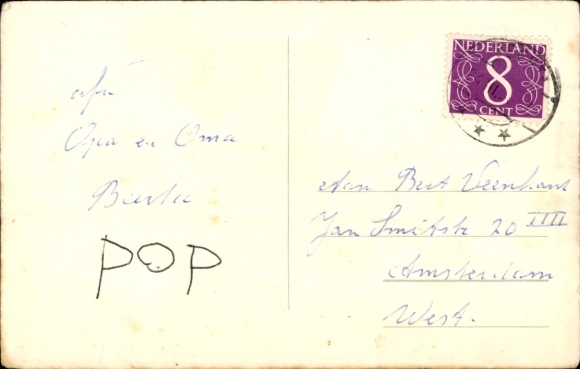 Opa en Oma
POP
NEDERLAND
8
CENT
Aan Bert Veenhans
Jan Smitstr 20 IIII
Amsterdam
West.